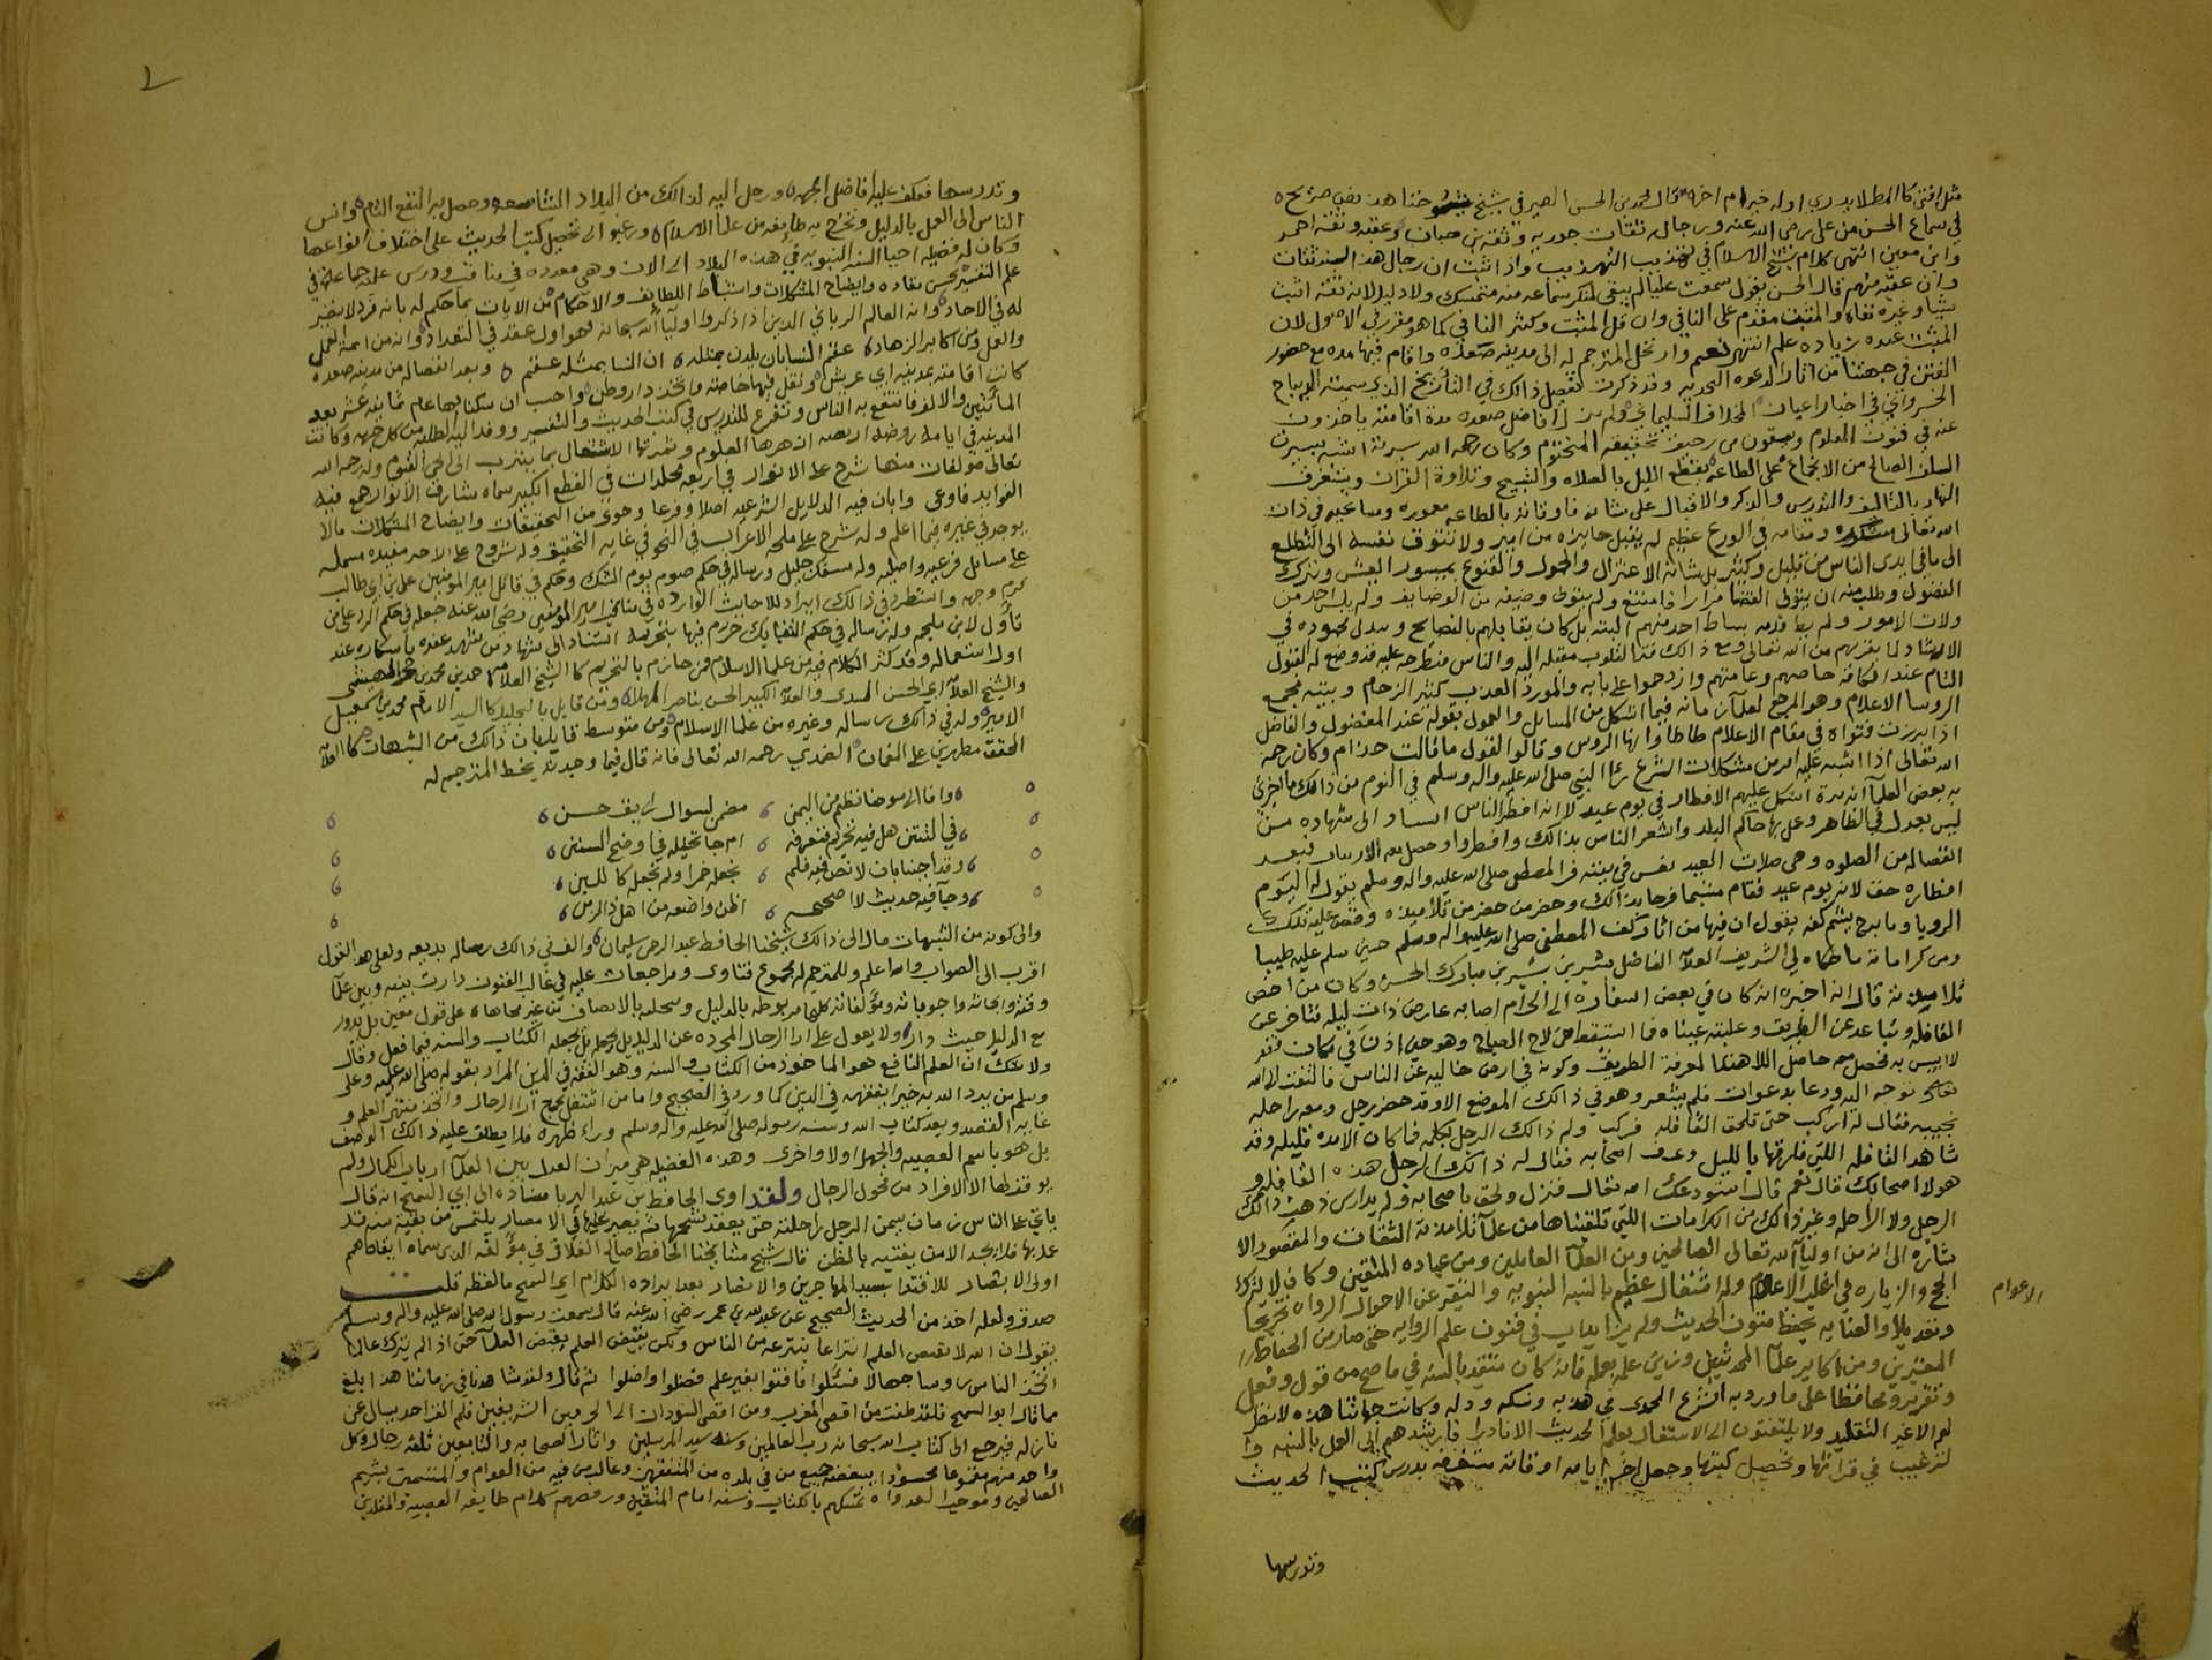 مثل امتى كالمطر لا يدرى اوله خير ام اخره قال محمد بن الحسن الصيرفي شيخ شيوخنا هذا نص صريح
في سماع الحسن من علي رضي الله عنه ورجاله ثقات جوريه وثقه بن حبان وعقبه وثقه احمد
وابن معين انتهى كلام شيخ الاسلام في تهذيب التهذيب واذا ثبت ان رجال هذا السند ثقات
وان عقبه منهم قال الحسن يقول سمعت عليا لم يبقى لمنكر سماعه منه متمسك ولا دليل لانه ثقه اثبت
شيئا وغيره نفاه والمثبت مقدم على النافي وان قل المثبت وكثر النافي كما هو مقرر في الاصول لان
المثبت عنده زياده علم انتهى نعم وارتحل المترجم له الى مدينه صعده واقام فيها مده مع حضور
الفتن في جهتنا من اثار الدعوه النجديه وقد ذكرت تفصيل ذالك في التاريخ الذي سميته الديباج
الخسرواني في اخبار اعيان المخلاف السليماني ولم يزل افاضل صعده مدة اقامته ياخذون
عنه في فنون العلوم ويسقون من رحيق تحقيقه المختوم وكان رحمه الله سيرته اشبه بسيرت
السلف الصالح من الانجماع على الطاعه يقطع الليل بالصلاه والتسبيح وتلاوة القران ويستغرق
النهار بالتاليف والتدريس والذكر والاقبال على شانه فاوقاته بالطاعه معموره ومساعيه في ذات
الله تعالى مشكوره ومقامه في الورع عظيم لم يقبل جايزه من امير ولا تتوق نفسه الى التطلع
الى ما في ايدى الناس من قليل وكثير بل شانه الاعتزال والخمول والقنوع بميسور العيش وترك
الفضول وطلب منه ان يتولى القضا مرارا فامتنع ولم يتولى وضيفه من الوضايف ولم يلبس احد من
ولات الامور ولم يطا قدمه بساط احد منهم البته بل كان يقابلهم بالنصايح ويبذل مجهوده في
الارشاد لما يقربهم من الله تعالى ومع ذالك فترا القلوب مقبله اليه والناس منطرحه عليه قد وضع له القبول
التام عند الكافه خاصهم وعامتهم وازدحموا على بابه والمورد العذب كثير الزحام وبيته مجمع
الروسا الاعلام وهو المرجع لعلمآ زمانه فيما اشكل من المسايل والمعول بقوله عند المفضول والفاضل
اذا برزت فتواه في مقام الاعلام طاطاوا لها الروس وقالوا القول ما قالت حذام وكان رحمه
الله تعالى اذا اشبه عليه امر من مشكلات الشرع رءا النبي صلى الله عليه واله وسلم في النوم من ذالك ما اخبرني
به بعض العلمآ انه مرة اشكل عليهم الافطار في يوم عيد لا انه افطر الناس استنادا الى شهاده من
ليس بعدل في الظاهر وعمل بها حاكم البلد واشعر الناس بذالك وافطروا وحصل معه الارتياب فبعد
انفصاله من الصلوه وهي صلات العيد نعس في بيته فرا المصطفى صلى الله عليه واله وسلم يقول له اليوم
افطاره حق لانه يوم عيد فقام متبسما فرحا بذالك وحضر من حضر من تلاميذه وقص عليه تلك
الرويا وما برح يشم كفه يقول ان فيها من اثار كف المصطفى صلى الله عليه واله وسلم حين سلم عليه طيبا
ومن كراماته ما حكاه لي الشريف العلامه الفاضل بشير بن شبير بن مبارك الحسني وكان من اخص
تلاميذه قال انه اخبره انه كان في بعض اسفاره الى الحرام اصابه عارض ذات ليله فتاخر عن
القافله وتباعد عن الطريق وغلبته عيناه فما استيقظ حتى لاح الصباح وهو حين اذن في مكان قفر
لا انيس به فحصل معه حاصل اللاهتدا لمعرفة الطريق وكونه في ارض خاليه عن الناس فالتفت لا الله
تعالى توجه اليه ودعا بدعوات فلم يشعر وهو في ذالك الموضع الاوقد حضر رجل ومعه راحله
نجيبه فقال له اركب حتى تلحق القافله فركب ولم ذالك الرجل يكلمه فما كان الا مده قليله وقد
شاهد القافله اللتي فارقها بالليل وعرف اصحابه فقال له ذالك الرجل هذه القافله و
هولا اصحابك قال نعم قال استودعك الله تعالى فنزل ولحق باصحابه ولم يدارى ذهب ذالك
الرجل ولا الراحله وغير ذالك من الكرامات اللتي تلقيناها من علمآ تلامذته الثقات والمقصود الا
شاره الى انه من اوليآ الله تعالى الصالحين ومن العلمآ العاملين ومن عباده المتقين وكان لا يترك
الحج والزياره في اغلب الاعلام وله اشتغال عظيم بالسنه النبويه والتنقير عن الاحوال الرواه تجريحا
الاعوام
وتعديلا والعنايه بحفظ متون الحديث ولم يزل يداب في فنون علم الروايه حتى صار من الحفاظ
المعتبرين ومن اكابر علمآ المحدثين وزين علمه بعمله فانه كان متقيد بالسنه في ما صح من قول وفعل
وتقرير ومحافظا على ما ورد به الشرع المحمدى في هديه ونسكه ودله وكانت جهاتنا هذه لا تنظر
لهم الا غير التقليد ولا يلتفتون الى الاستغال بعلم الحديث الا نادرا فارشدهم الى العمل بالسنه وا
لترغيب في قراتها وتحصيل كتبها وجعل اخر ايامه اوقاته مستغرقه بدرس كتب الحديث
وتدريسها
وتدريسها فعكف عليه افاضل الجهه ورحل اليه لذالك من البلاد الشاسعه وحصل به النفع التام وانس
الناس الى العمل بالدليل وتخرج به طايفه من علمآ الاسلام ورغبوا الى تحصيل كتب الحديث على اختلاف انواعها
وكان له فضيله احيا السنه النبويه في هذه البلاد الى الان وهي معدوده في مناقبه ودرس علمه جماعه في
علم التفسير بحسن مفاده وايضاح المشكلات واستنباط اللطايف والاحكام من الايات بما حكم له بانه فرد لا نضير
له في الاحاد وانه العالم الرباني الدين اذا ذكروا اوليآ الله سبحانه فهو اول عقد في التعداد وانه من ايمة العمل
والعلم ومن اكابر الزهاد عقم النسا ان يلدن بمثله ان النسا بمثله عقم وبعد انفصاله من مدينه صعده
كانت اقامته بمدينة ابي عريش ونقل اليها خاصته واتخذ دار وطن واحب ان سكنا بها عام ثمانيه عشر بعد
المائتين والالف فانتفع به الناس وتفرغ للتدريس في كتب الحديث والتفسير ووفد اليه الطلبه من كل جهه وكانت
المدينه في ايامه روضه اريضه ازهرها العلوم وثمرتها الاشتغال بما يقرب الى الحي القيوم وله رحمه الله
تعالى مولفات منها شرح على الانوار في اربعه مجلدات في القطع الكبير سماه مشارق الانوار جمع فيه
الفوايد فاوعى وابان فيه الدلايل الشرعيه اصلا وفرعا وحوى من التحقيقات وايضاح المشكلات مالا
يوجد في غيره فيما اعلم وله شرح على ملحه الاعراب في النحو في غايه التحقيق وله شروح على الاحر مفيده مشمله
على مسايل فرعيه واصليه وله منسك جليل ورساله في حكم صوم يوم الشك وحكم في قاتل امير المومنين علي بن ابي طالب
كرم وجهه واستطرد في ذالك ايراد للاحاديث الوارده في مناقب امير المومنين رضي الله عنه جعله في حكم الرد على من
تاول لابن ملجم وله رساله في حكم التنباك حرم فيها بتحريمه استنادا الى شهادة من شهد عنده باسكاره عند
اول استعماله وقد كثر الكلام فيه من علمآ الاسلام فمن جازم بالتحريم كالشيخ العلامه احمد بن محمد بن حجر الهيتمي
والشيخ العلامه ابي الحسن السندى والعلامه الكبير الحسن بن ناصر المهلا ومن قايل بالتحليل كالسيد الامام محمد بن اسمعيل
الامير وله في ذالك رساله وغيره من علمآ الاسلام ومن متوسط قايل بان ذالك من الشبهات كالعلامه
المحقق مطهر بن علي النعمان الضمدي رحمه الله تعالى فانه قال فيما وجدته بخط المترجم له
وافا الي سوحنا نظم من اليمن مضمن لسوال رايق حسن
في التتن هل فيه تحريم فنعرفه ام جا تحليله في اوضح السنن
وقد اجبنا بان لا نص فيه فلم نجعله خمرا ولم نجعله كاللبن
وجآ فيه حديث لا صحيح اظن واضعه من اهل ذا الزمن
والى كونه من الشبهات مال الى ذالك شيخنا الحافظ عبد الرحمن سليمان والف في ذالك رساله بديعه ولعل هو القول
اقرب الى الصواب والله اعلم وللمترجم له مجموع فتاوى ومراجعات علميه في غالب الفنون دارت بينه وبين علمآ
وقته وابحاثه واجوباته ومؤلفاته كلها مربوطه بالدليل ومحلاه بالانصاف من غير محاباه على قول معين بل يدور
مع الدليل حيث دار ولا يعول على ارا الرجال المجرده عن الدليل بل رحله بل نجعله الكتاب والسنه فيما فعل وقال
ولا شك ان العلم النافع هو الماخوذ من الكتاب والسنه وهو الفقه في الدين المراد بقوله صلى الله عليه وعلى
وسلم من يرد الله به خيرا يفقهه في الدين كما ورد في الصحيح واما من اشتغل بجمع ارا الرجال واتخذ منتهى العلم و
غايه القصد وبعد كتاب الله وسنه رسوله صلى الله عليه واله وسلم وراء ظهره فلا يطلق عليه ذالك الوصف
بل هو باسم العصبيه والجهل اولا واخرى وهذه الفضيله هي ميزان العدل بين العلمآ ارباب الكمال ولم
يوفق لها الا الافراد من فحول الرجال ولقد روى الحافظ بن عبد البر باسناده الى ابي السمح انه قال
ياتي على الناس زمان يسمن الرجل راحلته حتى يعقد شحمها ثم يصير عليها في الامصار يلتمس من يفتيه بسنه قد
عمل بها فلا يجد الا من يفتيه بالظن قال شيخ مشايخنا الحافظ صالح الفلاني في مؤلفه الذي سماه ايقاظ همم
اولى الابصار للاقتدا بسيد المهاجرين والانصار بعد ايراده لكلام ابي السمح مالفظه قلت
صدق ولعله اخذ من الحديث الصحيح عن عبد الله بن عمر رضي الله عنه قال سمعت رسول الله صلى الله عليه واله وسلم
يقول ان الله لا يقبض العلم انتزاعا ينتزعه من الناس ولكن يقبض العلم بقبض العلمآ حتى اذ الم يترك عالما
اتخذ الناس روسا جهالا فسئلوا فافتوا بغير علم فضلوا واضلوا ثم قال ولقد شاهدنا في زماننا هذا ابلغ
مما قال ابو السمح فلقد طفت من اقصى المغرب ومن اقصى السودان الى الحرمين الشريفين فلم الق احد يسال عن
نازله فيرجع الى كتاب الله سبحانه رب العالمين وسنه سيد المرسلين واثار الصحابه والتابعين ثلثه رجال وكل
واحد منهم مقموعا محسودا يبغضه جميع من في بلده من المتفقهين وغالب من فيه من العوام والمتسمين بشيم
الصالحين وموجب العداوه تمسكهم بالكتاب وسنه امام المتقين ورفضهم كلام طايفه العصبيه والمقلدين